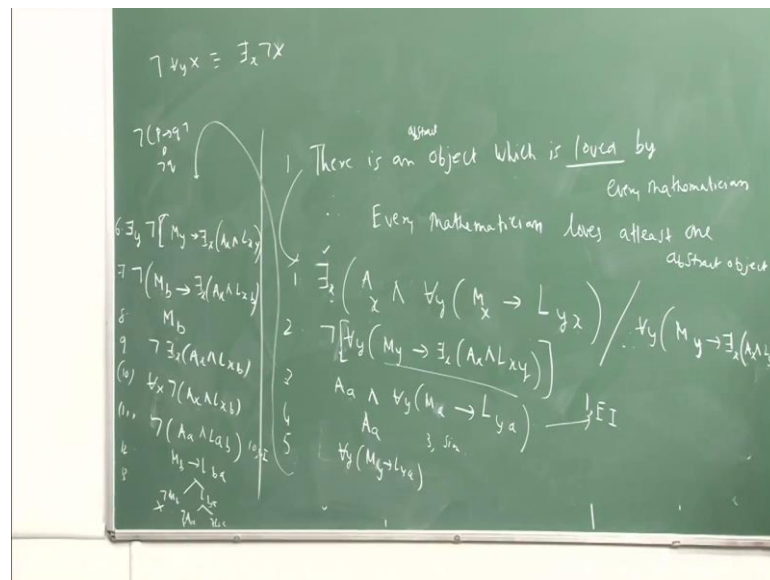 ¬∀yX ≡ ∃x¬X
¬(P→q)
¬q
6. ∃y ¬[My → ∃x(Ax ∧ Lxy)
7 ¬(Mb → ∃x(Ax ∧ Lxb)
8. Mb
9 ¬∃x(Ax ∧ Lxb)
(10) ∀x ¬(Ax ∧ Lxb)
¬(Aa ∧ Lab)
Mb → Lba
¬Mb Lba
1 There is an abstract object which is loved by
every mathematician
∴ Every mathematician loves atleast one
abstract object
1 ∃x(Ax ∧ ∀y(Mx → Lyx) / ∀y(My → ∃x(Ax ∧ Ly
2 ¬[∀y(My → ∃x(Ax ∧ Lxy)]
3 Aa ∧ ∀y(Ma → Lya) → 1, EI
4 Aa 3, Sim
5 ∀y(My → Lya)